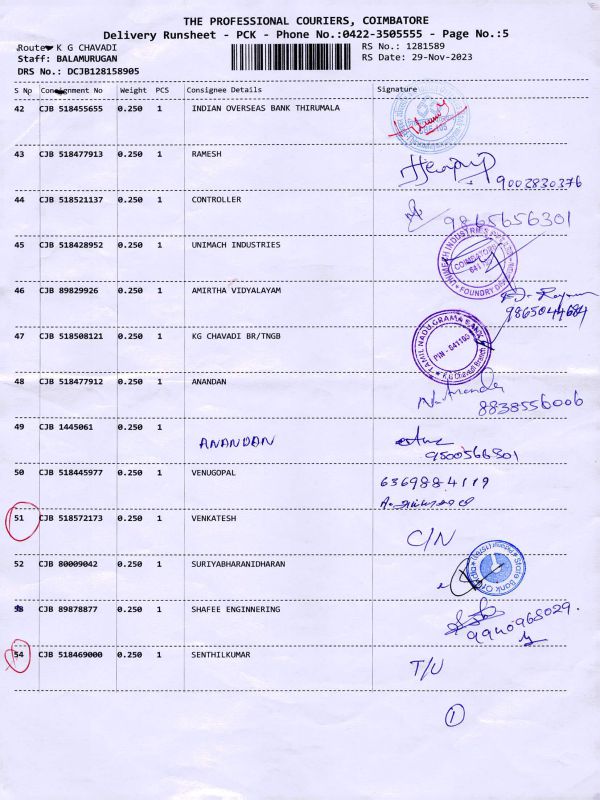 THE PROFESSIONAL COURIERS, COIMBATORE
Delivery Runsheet - PCK - Phone No.:0422-3505555 - Page No.:5
Route: K G CHAVADI
RS No.: 1281589
Staff: BALAMURUGAN
RS Date: 29-Nov-2023
DRS No.: DCJB128158905
S Np Consignment No Weight PCS Consignee Details Signature
42 CJB 518455655 0.250 1 INDIAN OVERSEAS BANK THIRUMALA
43 CJB 518477913 0.250 1 RAMESH
9002830376
44 CJB 518521137 0.250 1 CONTROLLER
9865656301
45 CJB 518428952 0.250 1 UNIMACH INDUSTRIES
COIMBATORE
641
FOUNDRY DIVISION
46 CJB 89829926 0.250 1 AMIRTHA VIDYALAYAM
9865044684
47 CJB 518508121 0.250 1 KG CHAVADI BR/TNGB
TAMIL NADU GRAMA BANK
PIN - 641105
K.G Chavadi Branch
48 CJB 518477912 0.250 1 ANANDAN
8838556006
49 CJB 1445061 0.250 1 ANANDAN
9500566301
50 CJB 518445977 0.250 1 VENUGOPAL
6369884119
51 CJB 518572173 0.250 1 VENKATESH
C/N
52 CJB 80009042 0.250 1 SURIYABHARANIDHARAN
State Bank Of India
53 CJB 89878877 0.250 1 SHAFEE ENGINNERING
9940965029.
54 CJB 518469000 0.250 1 SENTHILKUMAR
T/U
1